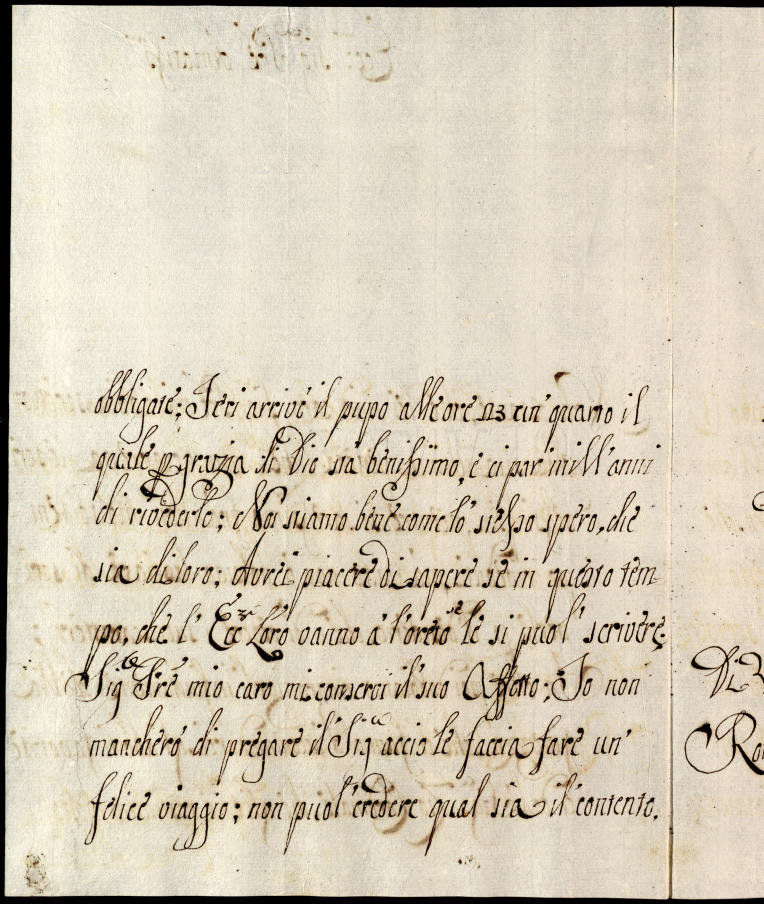 obbligate; Jeri arrivò il pupo alle ore 23 e un' quarto il
quale p grazia di Dio stà benissimo, e ci par mill'anni
di rivederle; Noi stiamo bene come lo stesso spero, che
sia di loro; Avrei piacere di sapere se in questo tem-
po, che l' Ecc.ze Loro vanno à l'oreto se le si puol' scrivere;
Sig.re Pre mio caro mi conservi il suo Affetto; Io non
mancherò di pregare il Sig.re acciò le faccia fare un'
felice viaggio; non puol' credere qual sia il' contento.
Di V
Ro